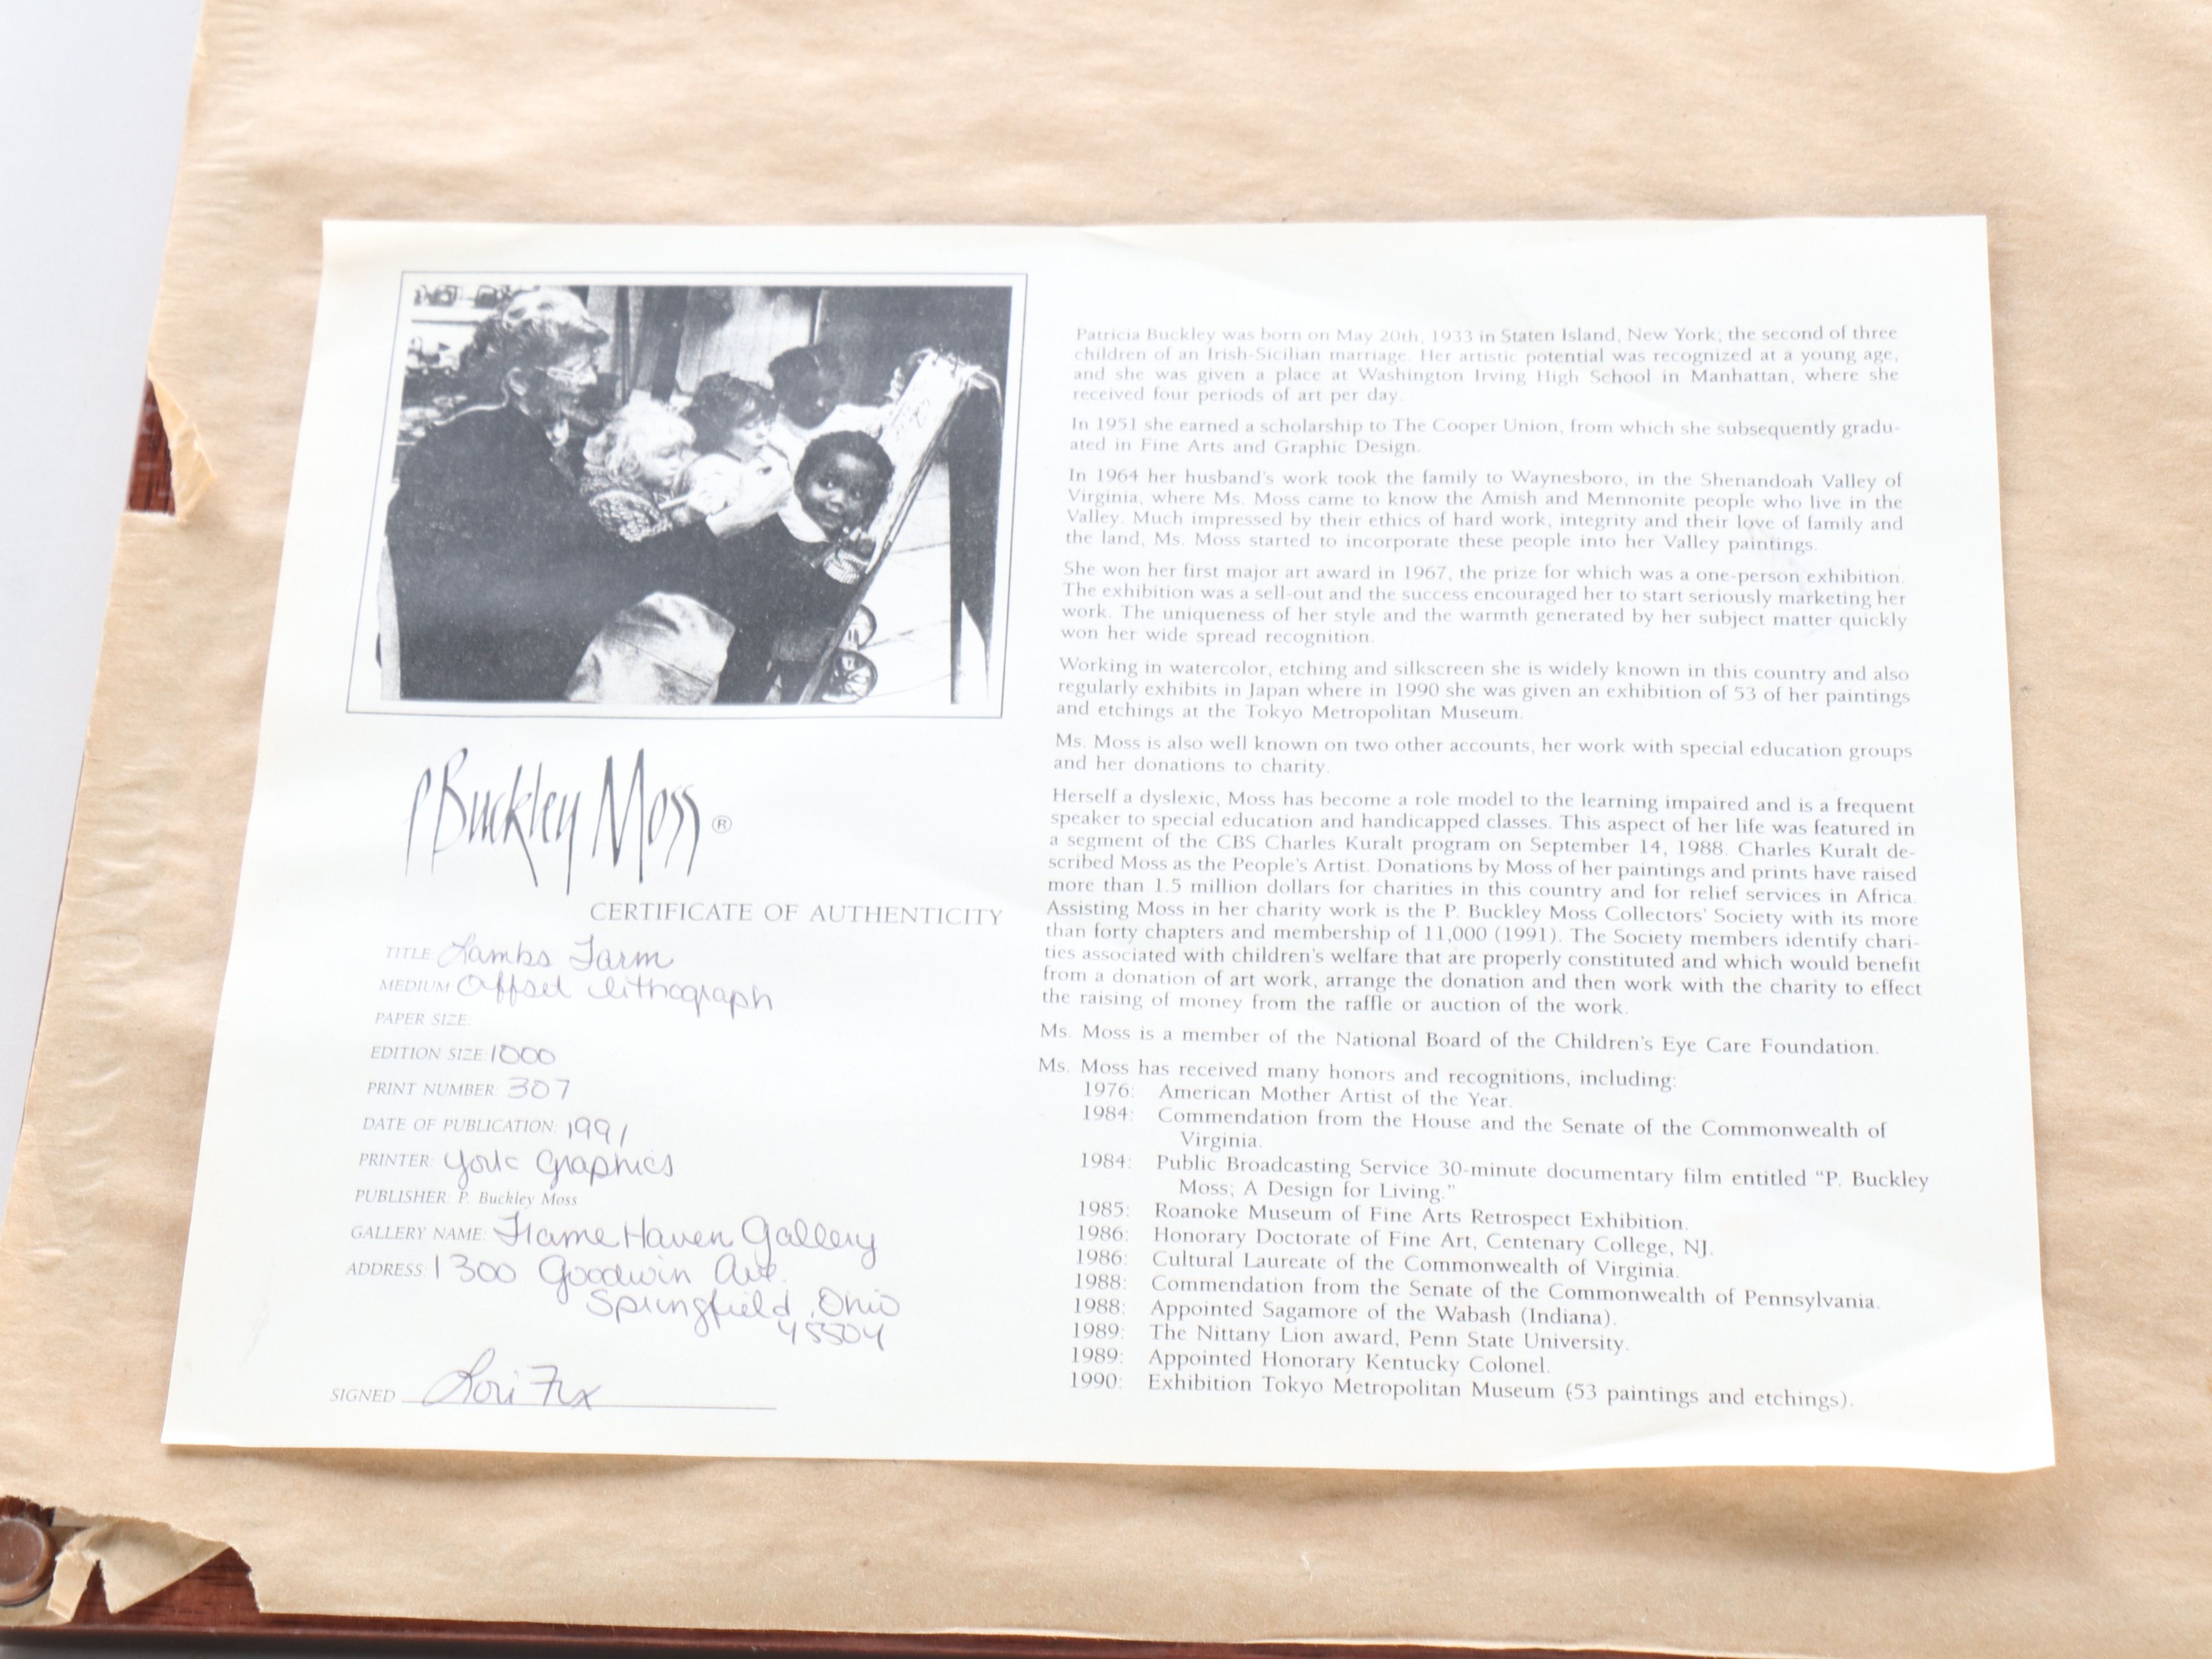 P Buckley Moss ®
CERTIFICATE OF AUTHENTICITY
TITLE: Lambs Farm
MEDIUM Offset lithograph
PAPER SIZE:
EDITION SIZE: 1000
PRINT NUMBER: 307
DATE OF PUBLICATION: 1991
PRINTER: York Graphics
PUBLISHER: P. Buckley Moss
GALLERY NAME: Frame Haven Gallery
ADDRESS: 1300 Goodwin Ave.
Springfield, Ohio
45504
SIGNED Lori Fix
Patricia Buckley was born on May 20th, 1933 in Staten Island, New York; the second of three
children of an Irish-Sicilian marriage. Her artistic potential was recognized at a young age,
and she was given a place at Washington Irving High School in Manhattan, where she
received four periods of art per day.
In 1951 she earned a scholarship to The Cooper Union, from which she subsequently gradu-
ated in Fine Arts and Graphic Design.
In 1964 her husband's work took the family to Waynesboro, in the Shenandoah Valley of
Virginia, where Ms. Moss came to know the Amish and Mennonite people who live in the
Valley. Much impressed by their ethics of hard work, integrity and their love of family and
the land, Ms. Moss started to incorporate these people into her Valley paintings.
She won her first major art award in 1967, the prize for which was a one-person exhibition.
The exhibition was a sell-out and the success encouraged her to start seriously marketing her
work. The uniqueness of her style and the warmth generated by her subject matter quickly
won her wide spread recognition.
Working in watercolor, etching and silkscreen she is widely known in this country and also
regularly exhibits in Japan where in 1990 she was given an exhibition of 53 of her paintings
and etchings at the Tokyo Metropolitan Museum.
Ms. Moss is also well known on two other accounts, her work with special education groups
and her donations to charity.
Herself a dyslexic, Moss has become a role model to the learning impaired and is a frequent
speaker to special education and handicapped classes. This aspect of her life was featured in
a segment of the CBS Charles Kuralt program on September 14, 1988. Charles Kuralt de-
scribed Moss as the People's Artist. Donations by Moss of her paintings and prints have raised
more than 1.5 million dollars for charities in this country and for relief services in Africa.
Assisting Moss in her charity work is the P. Buckley Moss Collectors' Society with its more
than forty chapters and membership of 11,000 (1991). The Society members identify chari-
ties associated with children's welfare that are properly constituted and which would benefit
from a donation of art work, arrange the donation and then work with the charity to effect
the raising of money from the raffle or auction of the work.
Ms. Moss is a member of the National Board of the Children's Eye Care Foundation.
Ms. Moss has received many honors and recognitions, including:
1976: American Mother Artist of the Year.
1984: Commendation from the House and the Senate of the Commonwealth of
Virginia.
1984: Public Broadcasting Service 30-minute documentary film entitled "P. Buckley
Moss; A Design for Living."
1985: Roanoke Museum of Fine Arts Retrospect Exhibition.
1986: Honorary Doctorate of Fine Art, Centenary College, NJ.
1986: Cultural Laureate of the Commonwealth of Virginia.
1988: Commendation from the Senate of the Commonwealth of Pennsylvania.
1988: Appointed Sagamore of the Wabash (Indiana).
1989: The Nittany Lion award, Penn State University.
1989: Appointed Honorary Kentucky Colonel.
1990: Exhibition Tokyo Metropolitan Museum (53 paintings and etchings).